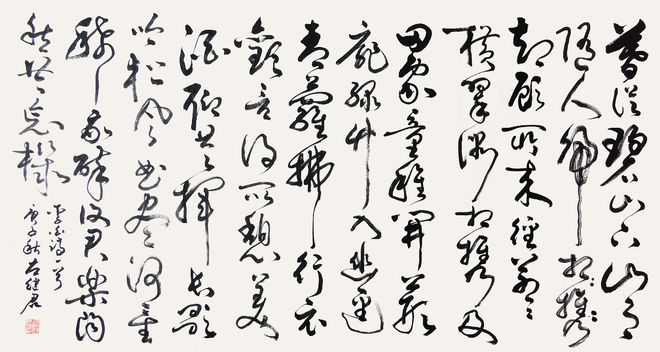 暮從碧山下山月
隨人歸相携
却顧所來徑蒼〻
橫翠微相携及
田家童稚開荊
扉綠竹入幽逕
青蘿拂行衣
歡言得所憩美
酒聊共揮長歌
吟松風曲盡河星
稀我醉復君樂陶
然共忘機
李白詩一首
庚子秋